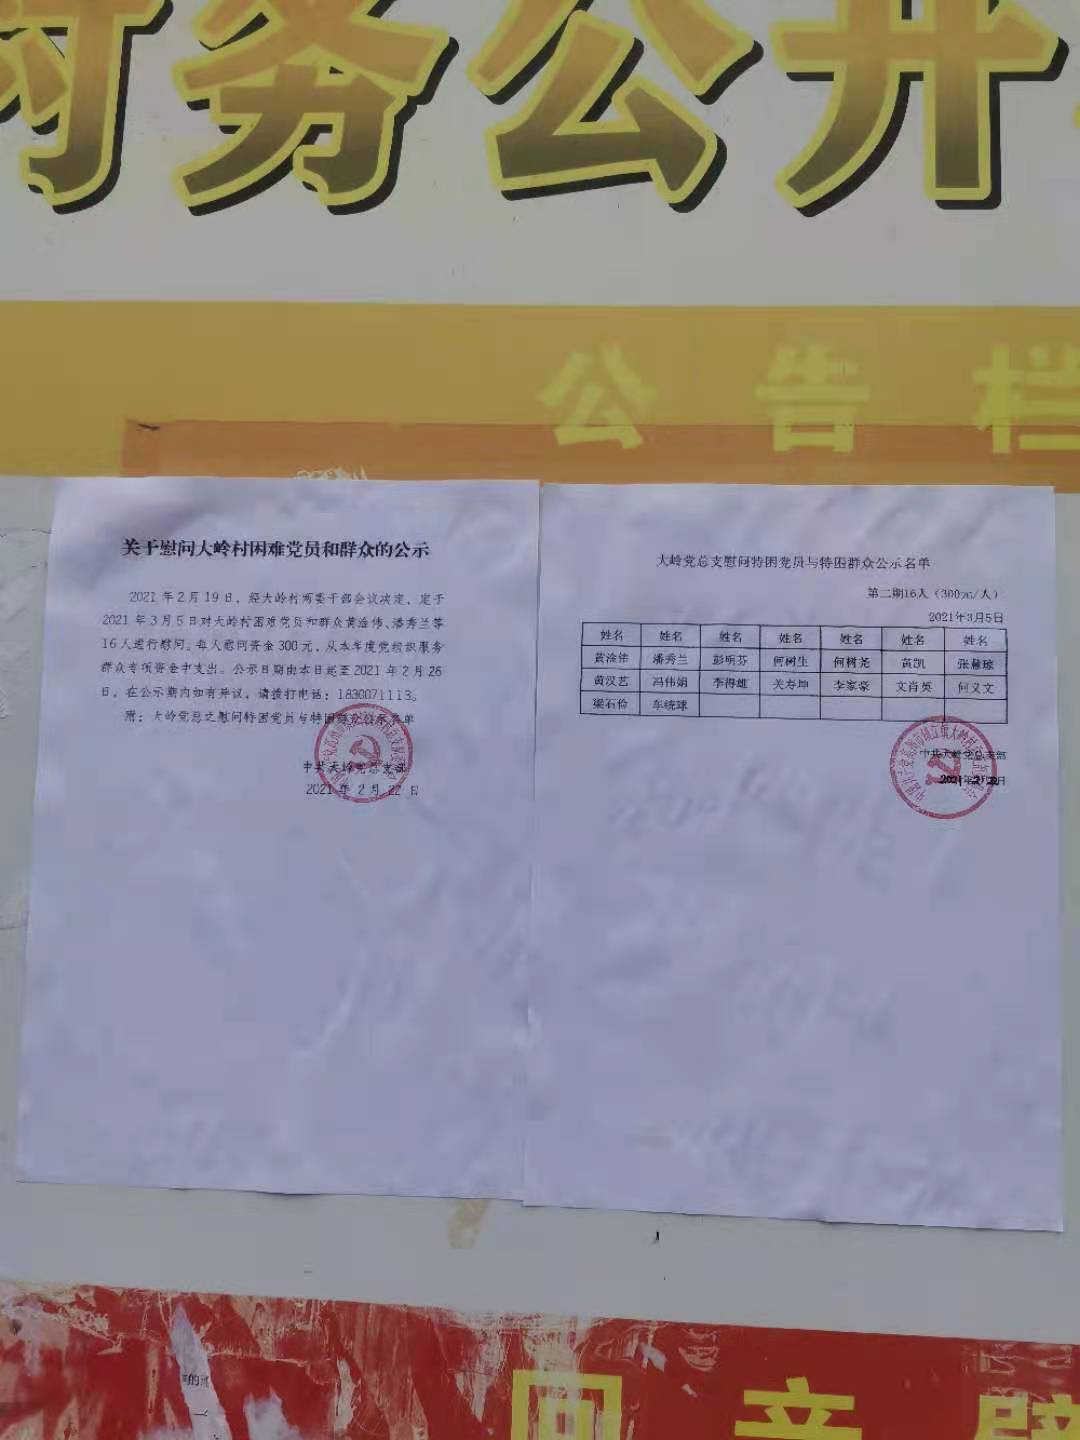 财务公开
公告栏
关于慰问大岭村困难党员和群众的公示
2021年2月19日,经大岭村两委干部会议决定,定于
2021年3月5日对大岭村困难党员和群众黄淦伟、潘秀兰等
16人进行慰问。每人慰问资金300元,从本年度党组织服务
群众专项资金中支出。公示日期由本日起至2021年2月26
日,在公示期内如有异议,请拨打电话:1830071113。
附:大岭党总之慰问特困党员与特困群众公示名单
中共大岭党总支部
2021年2月22日
大岭党总支慰问特困党员与特困群众公示名单
第二期16人(300元/人)
2021年3月5日
姓名 姓名 姓名 姓名 姓名 姓名 姓名
黄淦伟 潘秀兰 彭明芬 何树生 何树尧 黄凯 张慧琼
黄汉艺 冯伟娟 李得雄 关寿坤 李家豪 文肖英 何义文
梁石俭 车统球
中共大岭党总支部